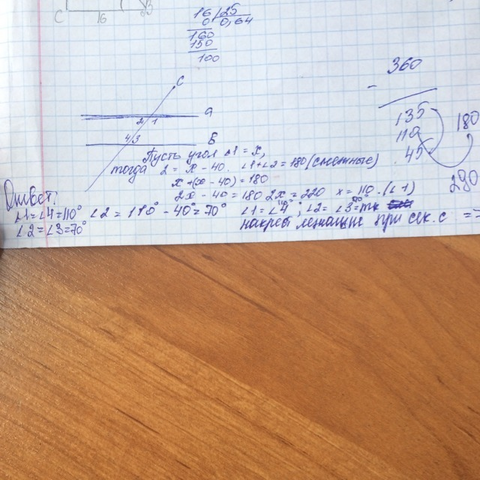 C 16
16 25
0 0,64
160
150
100
360
-
135
110
45
180
280
C
a
2 1
B
4 3
Пусть угол ∠1 = x,
тогда 2 = x - 40, ∠1+∠2 = 180 (смежные)
x + (x - 40) = 180
2x - 40 = 180 2x = 220 x = 110 - (∠1)
Ответ:
∠1=∠4=110° ∠2 = 110° - 40° = 70° ∠1 = ∠4 ; ∠2 = ∠3 = тк
∠2 = ∠3=70° накрест лежащие при сек. c =>